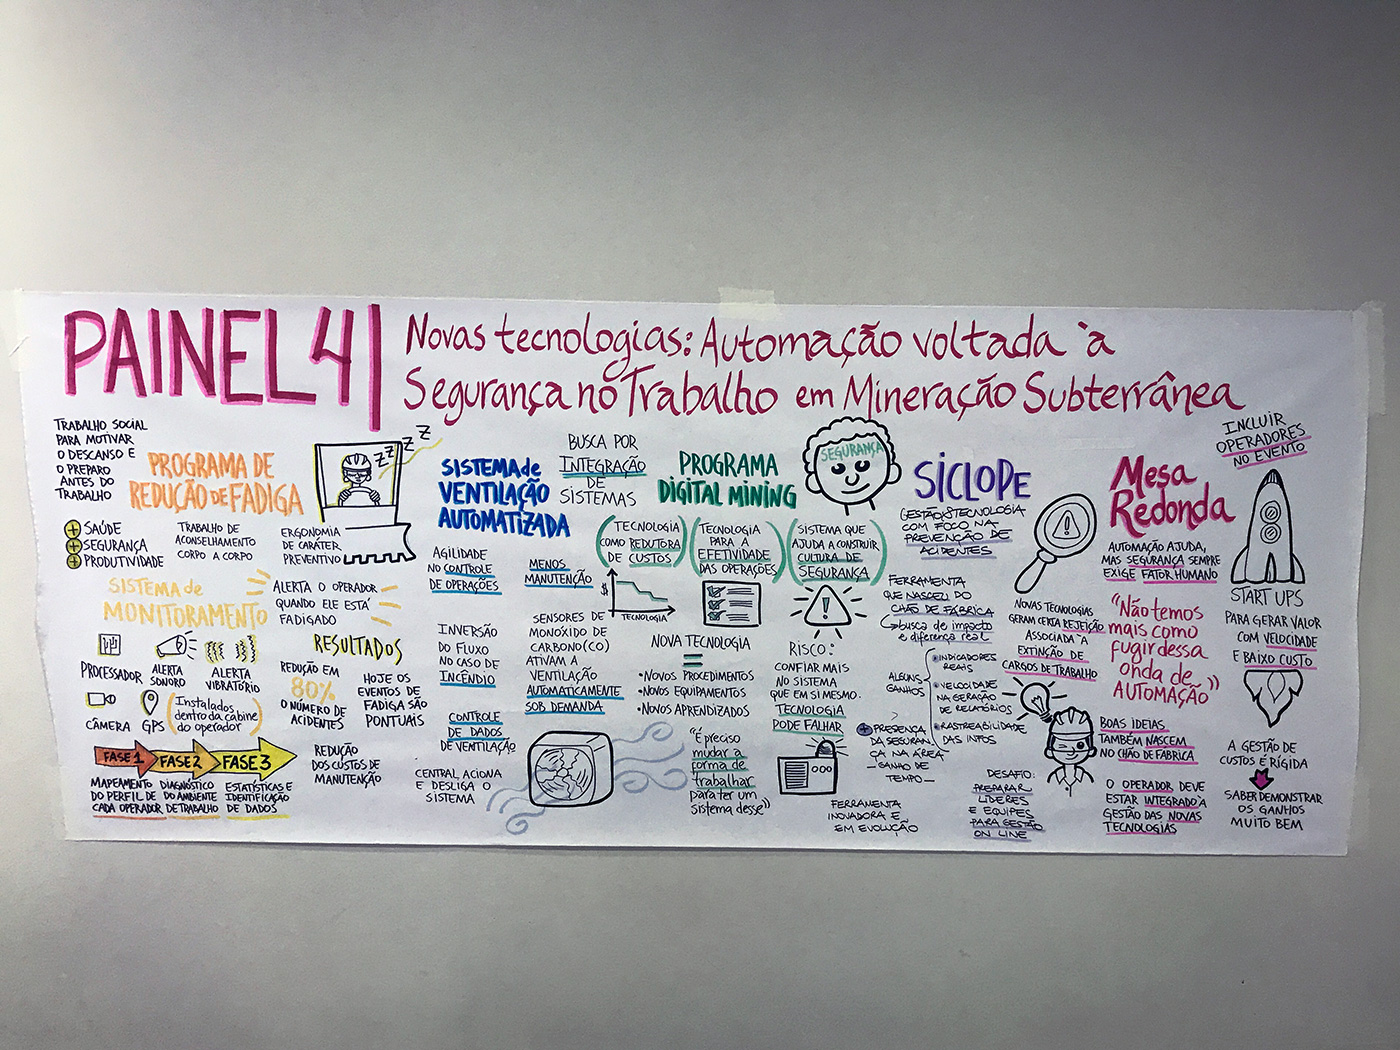 PAINEL 4
Novas tecnologias: Automação voltada à
Segurança no Trabalho em Mineração Subterrânea
TRABALHO SOCIAL
PARA MOTIVAR
O DESCANSO E
O PREPARO
ANTES DO
TRABALHO
PROGRAMA DE
REDUÇÃO DE FADIGA
z z z z z
+ SAÚDE
+ SEGURANÇA
+ PRODUTIVIDADE
TRABALHO DE
ACONSELHAMENTO
CORPO A CORPO
ERGONOMIA
DE CARÁTER
PREVENTIVO
SISTEMA de
MONITORAMENTO
ALERTA O OPERADOR
QUANDO ELE ESTÁ
FADIGADO
PROCESSADOR
ALERTA
SONORO
ALERTA
VIBRATÓRIO
CÂMERA
GPS
(Instalados
dentro da cabine
do operador)
RESULTADOS
REDUÇÃO EM
80%
O NÚMERO DE
ACIDENTES
HOJE OS
EVENTOS DE
FADIGA SÃO
PONTUAIS
REDUÇÃO
DOS CUSTOS DE
MANUTENÇÃO
FASE 1
FASE 2
FASE 3
MAPEAMENTO
DO PERFIL DE
CADA OPERADOR
DIAGNÓSTICO
DO AMBIENTE
DE TRABALHO
ESTATÍSTICAS E
IDENTIFICAÇÃO
DE DADOS
SISTEMA de
VENTILAÇÃO
AUTOMATIZADA
BUSCA POR
INTEGRAÇÃO
DE SISTEMAS
AGILIDADE
NO CONTROLE
DE OPERAÇÕES
MENOS
MANUTENÇÃO
INVERSÃO
DO FLUXO
NO CASO DE
INCÊNDIO
SENSORES DE
MONÓXIDO DE
CARBONO(CO)
ATIVAM A
VENTILAÇÃO
AUTOMATICAMENTE
SOB DEMANDA
CONTROLE
DE DADOS
DE VENTILAÇÃO
CENTRAL ACIONA
E DESLIGA O
SISTEMA
PROGRAMA
DIGITAL MINING
SEGURANÇA
(TECNOLOGIA
COMO REDUTORA
DE CUSTOS)
(TECNOLOGIA
PARA A
EFETIVIDADE
DAS OPERAÇÕES)
(SISTEMA QUE
AJUDA A CONSTRUIR
CULTURA DE
SEGURANÇA)
$
TECNOLOGIA
NOVA TECNOLOGIA
=
•NOVOS PROCEDIMENTOS
•NOVOS EQUIPAMENTOS
•NOVOS APRENDIZADOS
"É preciso
mudar a
forma de
trabalhar
para ter um
sistema desse"
!
RISCO:
CONFIAR MAIS
NO SISTEMA
QUE EM SI MESMO.
TECNOLOGIA
PODE FALHAR
SÍCLOPE
GESTÃO&TECNOLOGIA
COM FOCO NA
PREVENÇÃO DE
ACIDENTES
!
FERRAMENTA
QUE NASCEU DO
CHÃO DE FÁBRICA
busca de impacto
e diferença real
ALGUNS
GANHOS
•INDICADORES
REAIS
•VELOCIDADE
NA GERAÇÃO
DE RELATÓRIOS
•RASTREABILIDADE
DAS INFOS
+ PRESENÇA
DA SEGURAN
ÇA NA ÁREA
— GANHO DE
TEMPO —
FERRAMENTA
INOVADORA E
EM EVOLUÇÃO
DESAFIO:
PREPARAR
LÍDERES
E EQUIPES
PARA GESTÃO
ON LINE
Mesa
Redonda
AUTOMAÇÃO AJUDA,
MAS SEGURANÇA SEMPRE
EXIGE FATOR HUMANO
NOVAS TECNOLOGIAS
GERAM CERTA REJEIÇÃO
ASSOCIADA A
EXTINÇÃO DE
CARGOS DE TRABALHO
"Não temos
mais como
fugir dessa
onda de
AUTOMAÇÃO"
BOAS IDEIAS
TAMBÉM NASCEM
NO CHÃO DE FÁBRICA
O OPERADOR DEVE
ESTAR INTEGRADO À
GESTÃO DAS NOVAS
TECNOLOGIAS
INCLUIR
OPERADORES
NO EVENTO
START UPS
PARA GERAR VALOR
COM VELOCIDADE
E BAIXO CUSTO
A GESTÃO DE
CUSTOS É RÍGIDA
SABER DEMONSTRAR
OS GANHOS
MUITO BEM